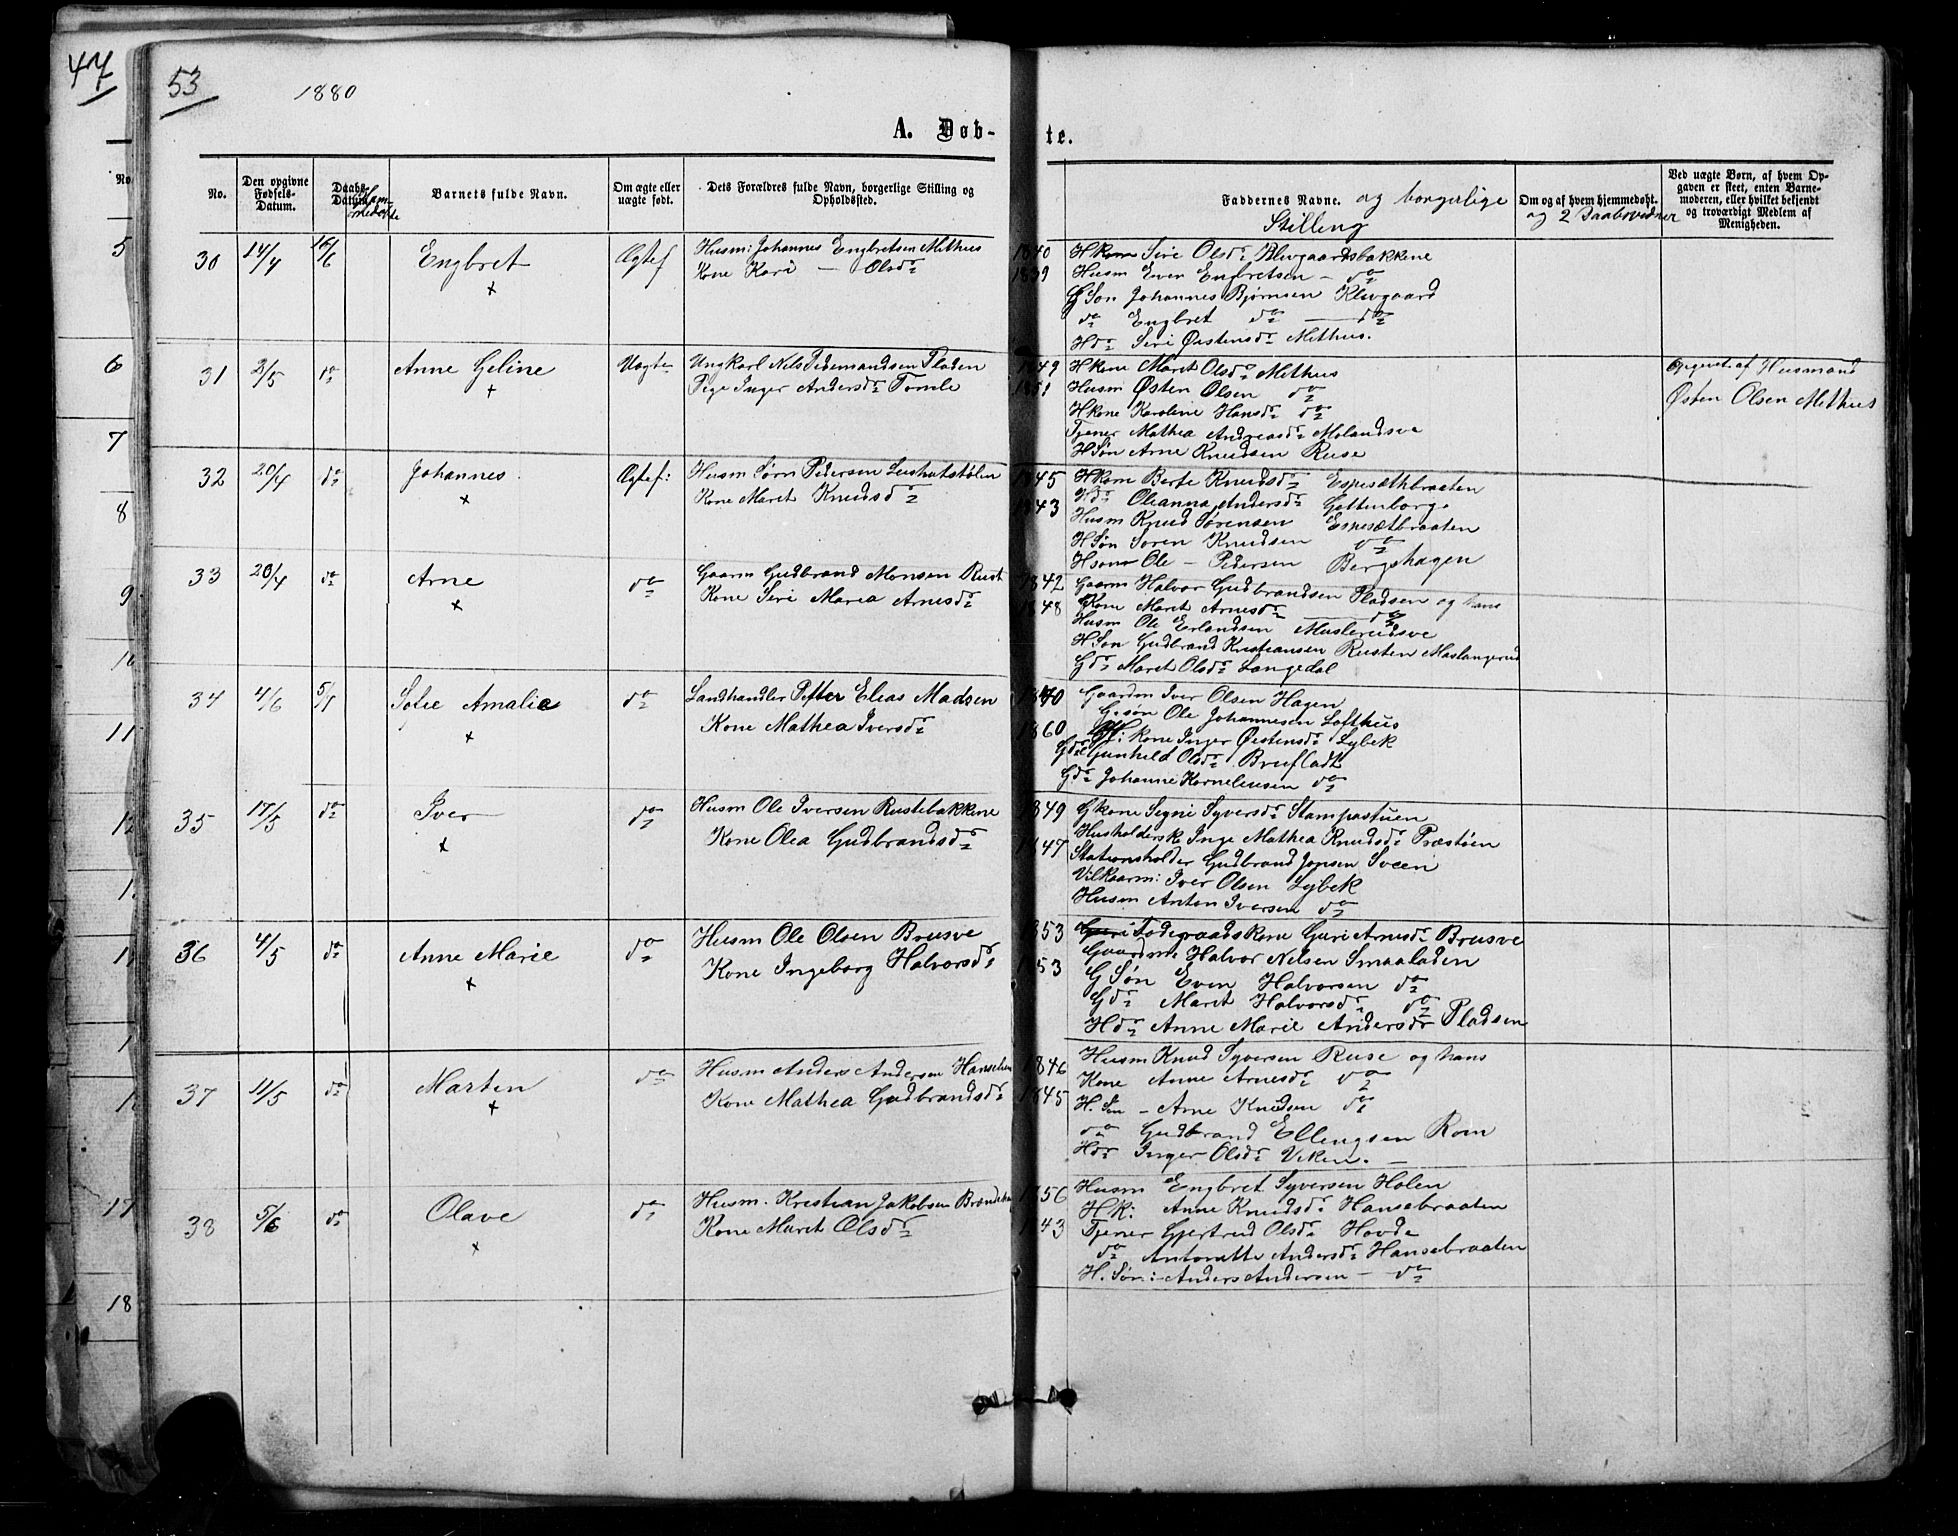 47
53
1880
A. Døb-
te.
No.
No.
Den opgivne Fødsels-Datum.
Daabs-Datum.
Barnets fulde Navn.
Om ægte eller uægte født.
Dets Forældres fulde Navn, borgerlige Stilling og Opholdssted.
Faddernes Navne. og borgerlige
Stilling
Om og af hvem hjemmedøbt.
og 2 Daabsvidner
Ved uægte Børn, af hvem Op-
gaven er skeet, enten Barne-
moderen, eller hvilket bekjendt
og troværdigt Medlem af
Menigheden.
5
6
7
8
9
10
11
12
17
18
30 14/4 16/6 Engbret Ægtef Husm: Johannes Engbretsen Methus 1840
Kone Kari — Olsdr 1839
+
Hkone Siri Olsdr Klevgaardsbakkene
Husm Even Engbretsen — do
GSøn Johannes Bjørnsen Klevgaard
do Engbret do — do
Hdr Siri Østensdr Methus.
31 2/5 do Anne Geline Uægte Ungkarl Nils Pladen 1849
Pige Inger Andersdr Tomle 1851
+
Hkone Marit Olsdr Methus
Husm Østen Olsen do
Hkone Karoline Hansdr do
Tjener Mathea Andreasdr Molandsve
HSøn Arne Knudsen Ruse
Opgivet af Husmand
Østen Olsen Methus
32 20/4 do Johannes Ægtef: Husm Sørn Pedersen 1845
Kone Maret Knudsdr 1843
+
Hkone Berte Knudsdr Espesæthbraaten
Hdr Oleanna Andersdr Gottenborg
Husm Knud Sørensen Espesætbraaten
HSøn Søren Knudsen do
Hsøn Ole — Pedersen Bergshagen
33 20/4 do Arne do Gaarm Gudbrand Monsen Rust 1842
Kone Siri Maria Arnesdr 1848
+
Gaarm Halvor Gudbrandsen Pladsen og hans
Kone Maret Arnesdr — do
Husm Ole Erlandsen Muslerudsve
HSøn Gudbrand Kristiansen Rusten Maslangerud
Gdr Maret Olsdr Langedal
34 4/6 Sofie Amalie do Landhandler Petter Elias Madsen 1840
Kone Mathea Iversdr 1860
+
Gaardm Iver Olsen Hagen
Gsøn Ole Johannesen Lofthus
kone Inger Østensdr Lybek
Gdr Gunhild Olsdr Brufladt
Gdr Johanne Korneliusen do
35 17/5 do Iver do Husm Ole Iversen Rustebakkene 1849
Kone Olea Gudbrandsdr 1847
+
Gkone Segni Syversdr Stampastuen
Husholderske Inge Mathea Knudsdr Præstøien
Stationsholder Gudbrand Jonsen Sveen
Vilkaarm: Iver Olsen Lybek
Husm Anton Iversen do
36 4/5 do Anne Marie do Husm Ole Olsen Brusve 1853
Kone Ingeborg Halvorsdr 1853
+
Føderaadskone Guri Arnesdr Brusve
Gaardm. Halvor Nilsen Smaaladen
G Søn Even Halvorsen do
Gdr Maret Halvorsdr do
Hdr Anne Marie Andersdr Pladsen
37 11/5 do Marten do Husm Anders Andersen 1846
Kone Mathea Gudbrandsdr 1845
+
Husm Knud Syversen Ruse og hans
Kone Anne Arnesdr do
H. Søn — Arne Knudsen do
do Gudbrand Ellengsen Rom
Hdr Inger Olsdr Viken. —
38 5/6 do Olave do Husm. Kristian Jakobsen 1856
Kone Maret Olsdr 1843
+
Husm Engbret Syversen Holen
Hk: Anne Knudsdr Hansebraaten
Tjener Gjertrud Olsdr Hovde
do Antonette Andersdr Hansebraaten
H. Søn: Anders Andersen — do